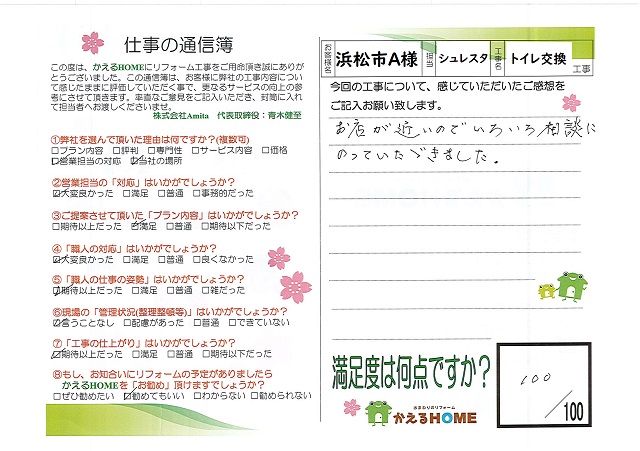 仕事の通信簿
この度は、かえるHOMEにリフォーム工事をご用命頂き誠にありが
とうございました。この通信簿は、お客様に弊社の工事内容につい
て感じたままに評価していただく事で、更なるサービスの向上の参
考にさせて頂きます。率直なご意見をご記入いただき、封筒に入れ
て担当者へお渡しくださいませ。
株式会社Amita 代表取締役:青木健至
①弊社を選んで頂いた理由は何ですか?(複数可)
□プラン内容 □評判 □専門性 □サービス内容 □価格
☑営業担当の対応 ☑当社の場所
②営業担当の「対応」はいかがでしょうか?
☑大変良かった □満足 □普通 □事務的だった
③ご提案させて頂いた「プラン内容」はいかがでしょうか?
□期待以上だった ☑満足 □普通 □期待以下だった
④「職人の対応」はいかがでしょうか?
☑大変良かった □満足 □普通 □良くなかった
⑤「職人の仕事の姿勢」はいかがでしょうか?
☑期待以上だった □満足 □普通 □雑だった
⑥現場の「管理状況(整理整頓等)」はいかがでしょうか?
☑言うことなし □配慮があった □普通 □できていない
⑦「工事の仕上がり」はいかがでしょうか?
☑期待以上だった □満足 □普通 □期待以下だった
⑧もし、お知合いにリフォームの予定がありましたら
かえるHOMEを「お勧め」頂けますでしょうか?
□ぜひ勧めたい ☑勧めてもいい □わからない □勧められない
お客様名 浜松市A様 担当 シュレスタ 工事名 トイレ交換 工事
今回の工事について、感じていただいたご感想を
ご記入お願い致します。
お店が近いのでいろいろ相談に
のっていただきました。
満足度は何点ですか?
100
/100
水まわりのリフォーム
かえるHOME